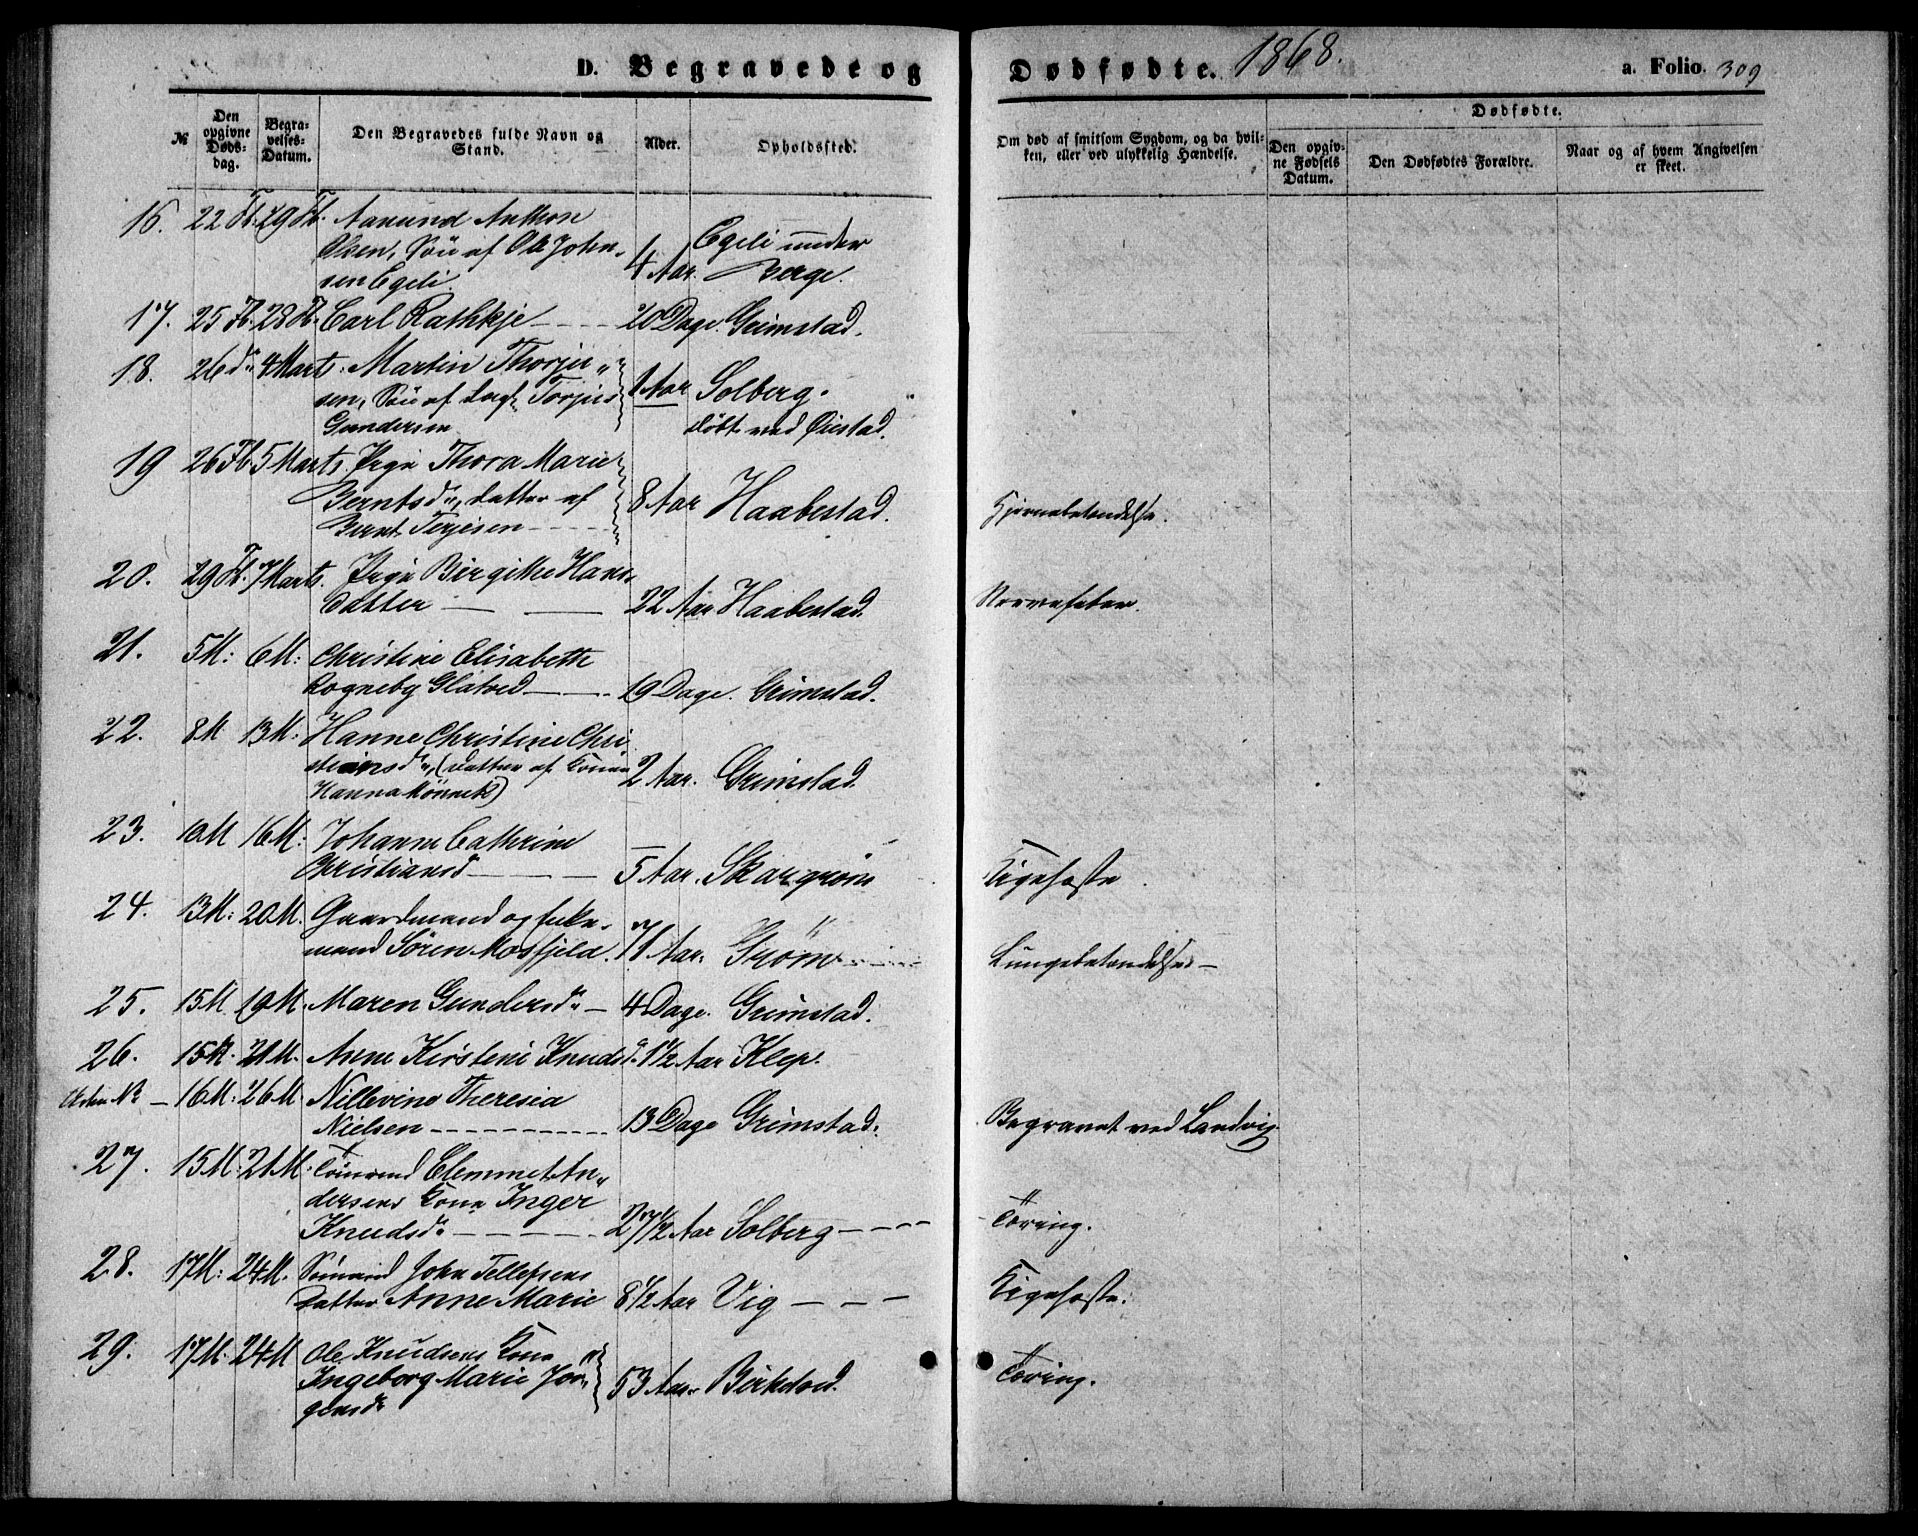 D. Begravede og Dødfødte. 1868. a. Folio. 309
№
Den opgivne Døds-dag.
Begra-velses-Datum.
Den Begravedes fulde Navn og Stand.
Alder.
Opholdssted.
Om død af smitsom Sygdom, og da hvil-ken, eller ved ulykkelig Hændelse.
Dødfødte.
Den opgiv-ne Fødsels Datum.
Den Dødfødtes Forældre.
Naar og af hvem Angivelsen er skeet.
16. 22 Fb. 29 Fb. Aanund Anthon
Olsen, Søn af Ole John-
sen Egeli. 4 Aar. Egeli under
Berge.
17. 25 Fb. 28 Fb. Carl Rathkje 20 Dage. Grimstad.
18. 26 do 4 Marts. Martin Thorju-
sen, Søn af Torjus
Gundersen 1 Aar Solberg.
døbt ved Øiestad.
19 26 Fb 5 Marts. Pige Thora Marie
Berntsdr, Datter af
Bernt Terjesen 8 Aar Haabestad. Hjernebetændelse.
20. 29 Fb. 7 Marts. Pige Birgitte Hans-
Datter 22 Aar Haabestad. Nervefeber.
21. 5 M: 6 M: Christine Elisabeth
Rogneby Glatved 19 Dage. Grimstad.
22. 8 M 13 M: Hanne Christine Chri
stiansdr, (Datter af
Hanna 2 Aar. Grimstad.
23. 10 M 16 M: Johanne Cathrine
Christiansd 5 Aar. Skargrøm Kighoste.
24. 13 M: 20 M. Gaardmand og
mand Sören Mosfjeld. 71 Aar. Grøm Lungebetændelse
25. 15 M 19 M. Maren Gundersdr 4 Dage. Grimstad.
26. 15 M. 21 M. Anne Kirstine Knudsdr. 1 1/2 Aar Klep.
Uden No 16 M: 26 M. Nillevine Theresia
Nielsen 13 Dage Grimstad. Begravet ved Landvig
27. 15 M: 21 M. Tömrmd Clemmet An-
dersens Kone Inger
Knudsdr 27 1/2 Aar Solberg Tæring.
28. 17 M: 24 M. Sömand John Tellefsens
Datter Anne Marie 8 1/2 Aar Vig Kighoste.
29. 17 M: 24 M Ole Knudsens Kone
Ingeborg Marie Jör-
gensdr 53 Aar. Birkedal. Tæring.